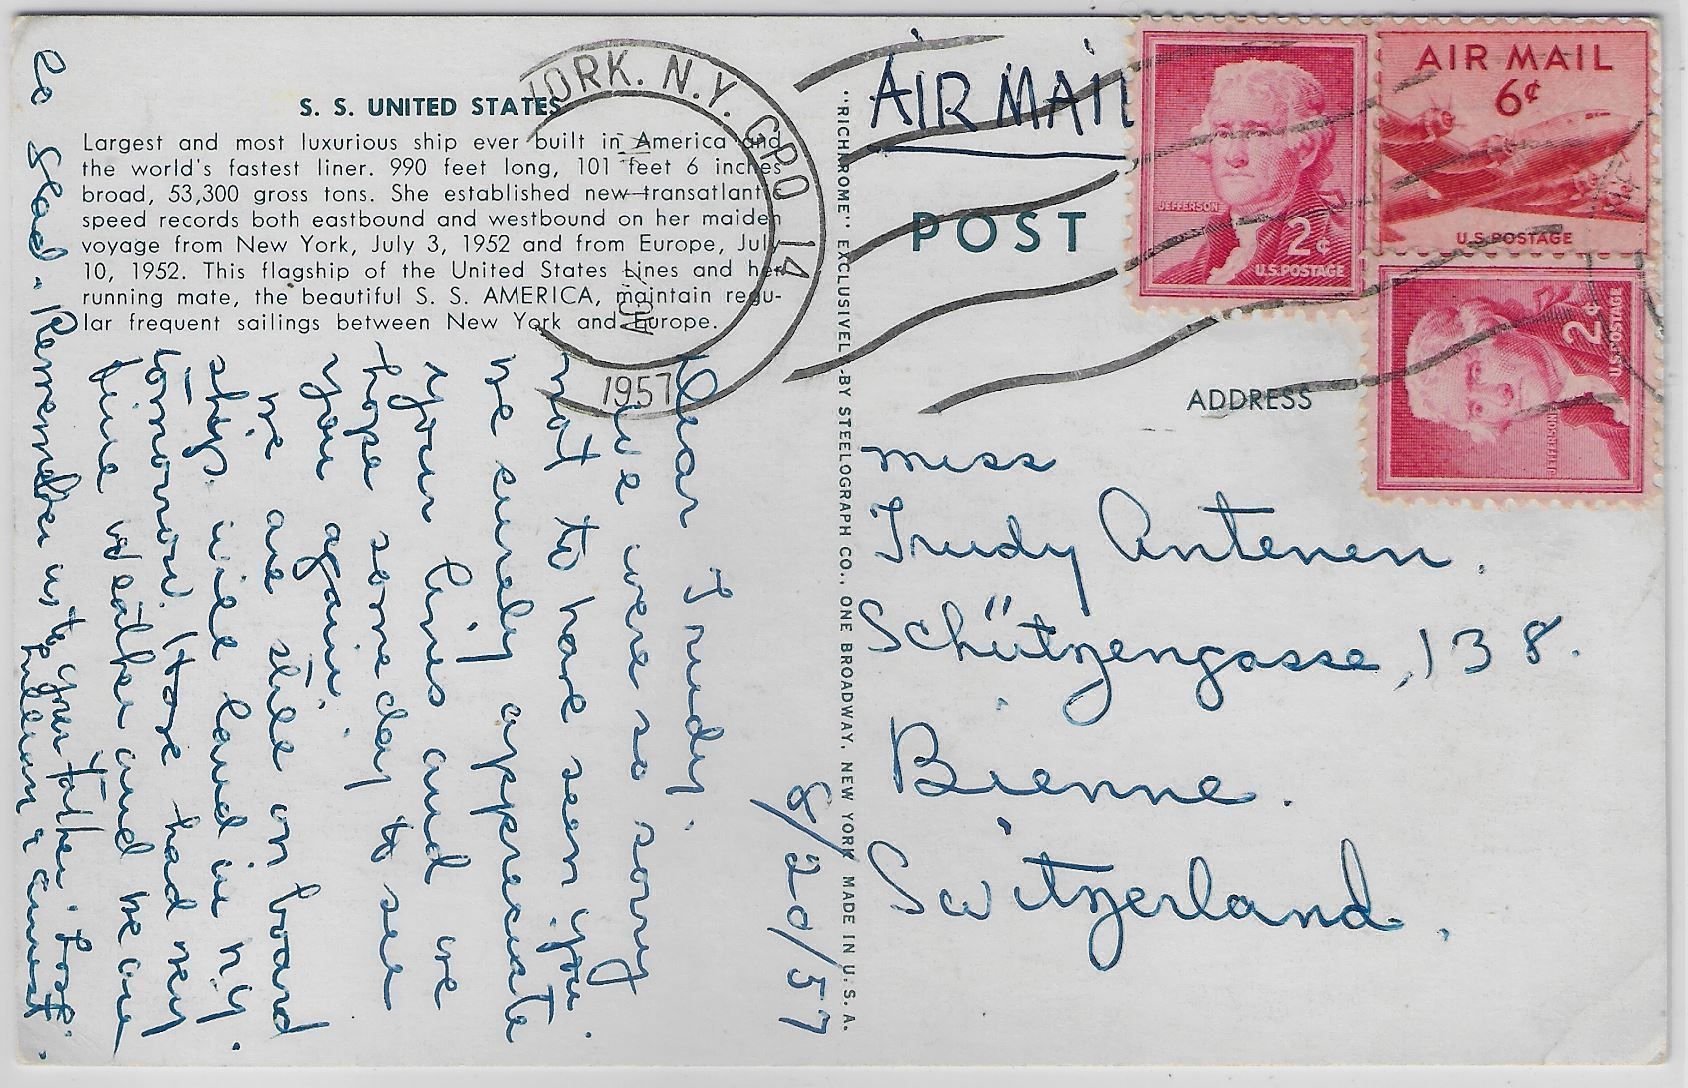 S. S. UNITED STATES
Largest and most luxurious ship ever built in America and
the world's fastest liner. 990 feet long, 101 feet 6 inches
broad, 53,300 gross tons. She established new transatlantic
speed records both eastbound and westbound on her maiden
voyage from New York, July 3, 1952 and from Europe, July
10, 1952. This flagship of the United States Lines and her
running mate, the beautiful S. S. AMERICA, maintain regu-
lar frequent sailings between New York and Europe.
YORK. N.Y. GPO 14
1957
8/20/57
Dear Trudy.
We were so sorry
not to have seen you.
We surely appreciate
your lines and we
hope someday to see
you again.
We are still on board
ship. will land in N.Y.
tomorrow. Have had very
fine weather and we are
so glad. Remember us to your father & Post.
"RICHROME" EXCLUSIVELY BY STEELOGRAPH CO., ONE BROADWAY, NEW YORK MADE IN U. S. A.
AIR MAIL
POST
ADDRESS
JEFFERSON
2¢
U.S. POSTAGE
AIR MAIL
6¢
U.S. POSTAGE
JEFFERSON
2¢
U.S. POSTAGE
Miss
Trudy Antenen.
Schützengasse, 138.
Bienne.
Switzerland.